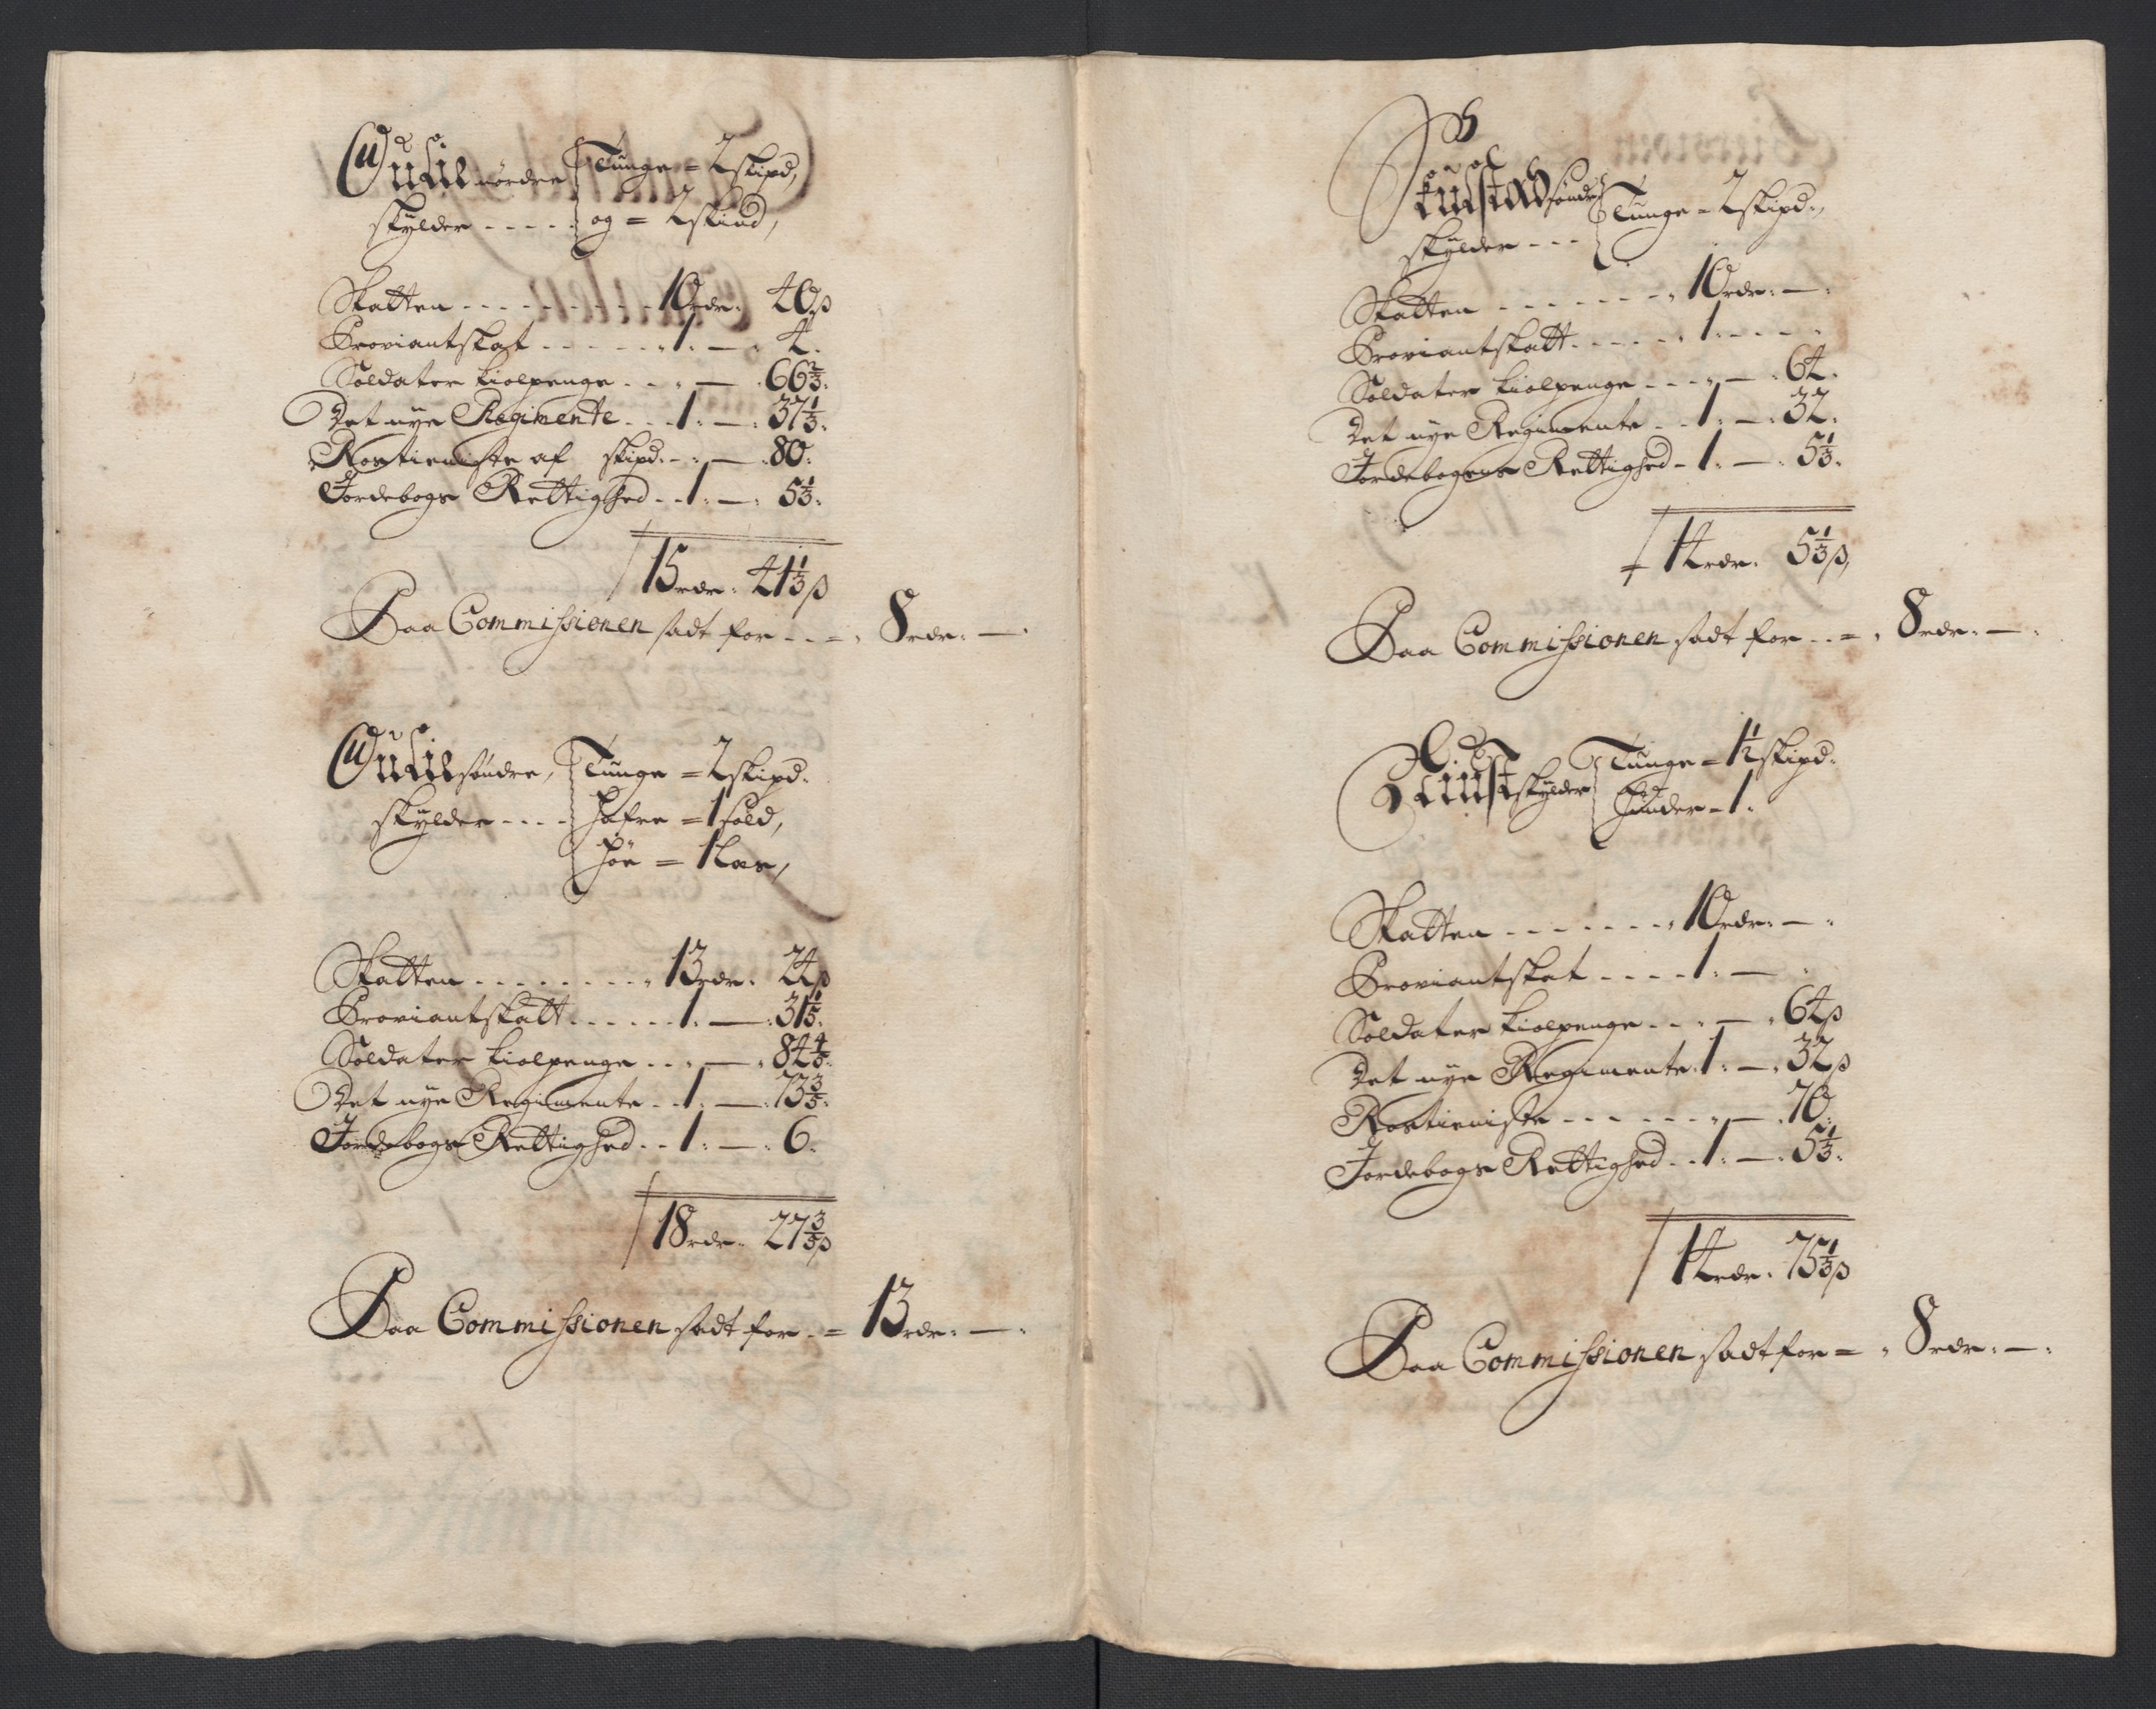 nordre Tunge = 2 skipd,
skylder - - - - - og = 2 skind,
Skatten - - - - - - - - 10 rdr: 40 ß
Proviantskat - - - - - - 1: — : 4.
Soldater Kiolpenge - - - : — : 66 2/3:
Det nye Regimente - - - 1: — : 37 1/3:
Rostieniste af skipd: - : — : 80:
Jordebogs Rettighed - - 1: — : 5 1/3:
15 rdr: 41 1/3 ß
Paa Commissionen sadt for - - = 8 rdr: —:
søndre, Tunge = 2 skipd:
skylder - - - - hafre = 1 sold,
høe = 1 Læs,
Skatten - - - - - - - - 13 rdr: 24 ß
Proviantskatt - - - - - - 1: — : 31 1/5:
Soldater Kiolpenge - - : — : 84 4/5:
Det nye Regimente - - 1: — : 73 3/5:
Jordebogs Rettighed - - 1: — : 6:
18 rdr: 27 3/5 ß
Paa Commissionen sadt for - = 13 rdr: —:
Skulstad søndre Tunge = 2 skipd:,
skylder - - -
Skatten - - - - - - - 10 rdr: —:
Proviantskatt - - - - - 1: - - - -
Soldater Kiolpenge - - - : — : 64:
Det nye Regimente - - 1: — : 32:
Jordebogens Rettighed - 1: — : 5 1/3:
14 rdr: 5 1/3 ß,
Paa Commissionen sadt for - - = 8 rdr: —:
skylder Tunge = 1 1/2 skipd:
huder = 1:
Skatten - - - - - - - 10 rdr: —:
Proviantskat - - - - 1: — :
Soldater Kiolpenge - - : — : 64 ß
Det nye Regimente: 1: — : 32 ß
Rostieniste - - - - - - : — : 70:
Jordebogs Rettighed - - 1: — : 5 1/3:
14 rdr: 75 1/3 ß
Paa Commissionen sadt for = 8 rdr: —: